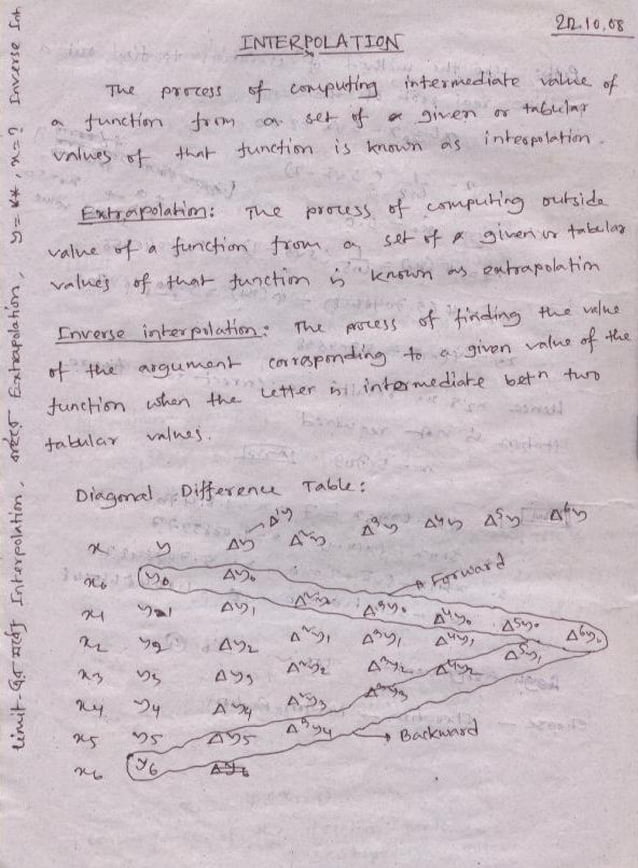 22.10.08
INTERPOLATION
The process of computing intermediate value of
a function from a set of a given or tabular
values of that function is known as interpolation.
Extrapolation: The process of computing outside
value of a function from a set of a given or tabular
values of that function is known as extrapolation
Inverse interpolation: The process of finding the value
of the argument corresponding to a given value of the
function when the letter is intermediate betn two
tabular values.
Diagonal Difference Table:
Δ¹y
x y Δy Δ²y Δ³y Δ⁴y Δ⁵y Δ⁶y
x₀ y₀ Δy₀ Forward
x₁ y₁ Δy₁ Δ³y₀ Δ⁴y₀ Δ⁵y₀
x₂ y₂ Δy₂ Δ²y₁ Δ³y₁ Δ⁴y₁ Δ⁶y₀
x₃ y₃ Δy₃ Δ²y₂ Δ³y₂ Δ⁴y₂ Δ⁵y₁
x₄ y₄ Δ²y₃ Δ³y₃
x₅ y₅ Δy₅ Δ³y₄ Backward
x₆ y₆ Δy₆
limit-এর মধ্যে Interpolation, বাইরে Extrapolation, y=**, x=? Inverse Int